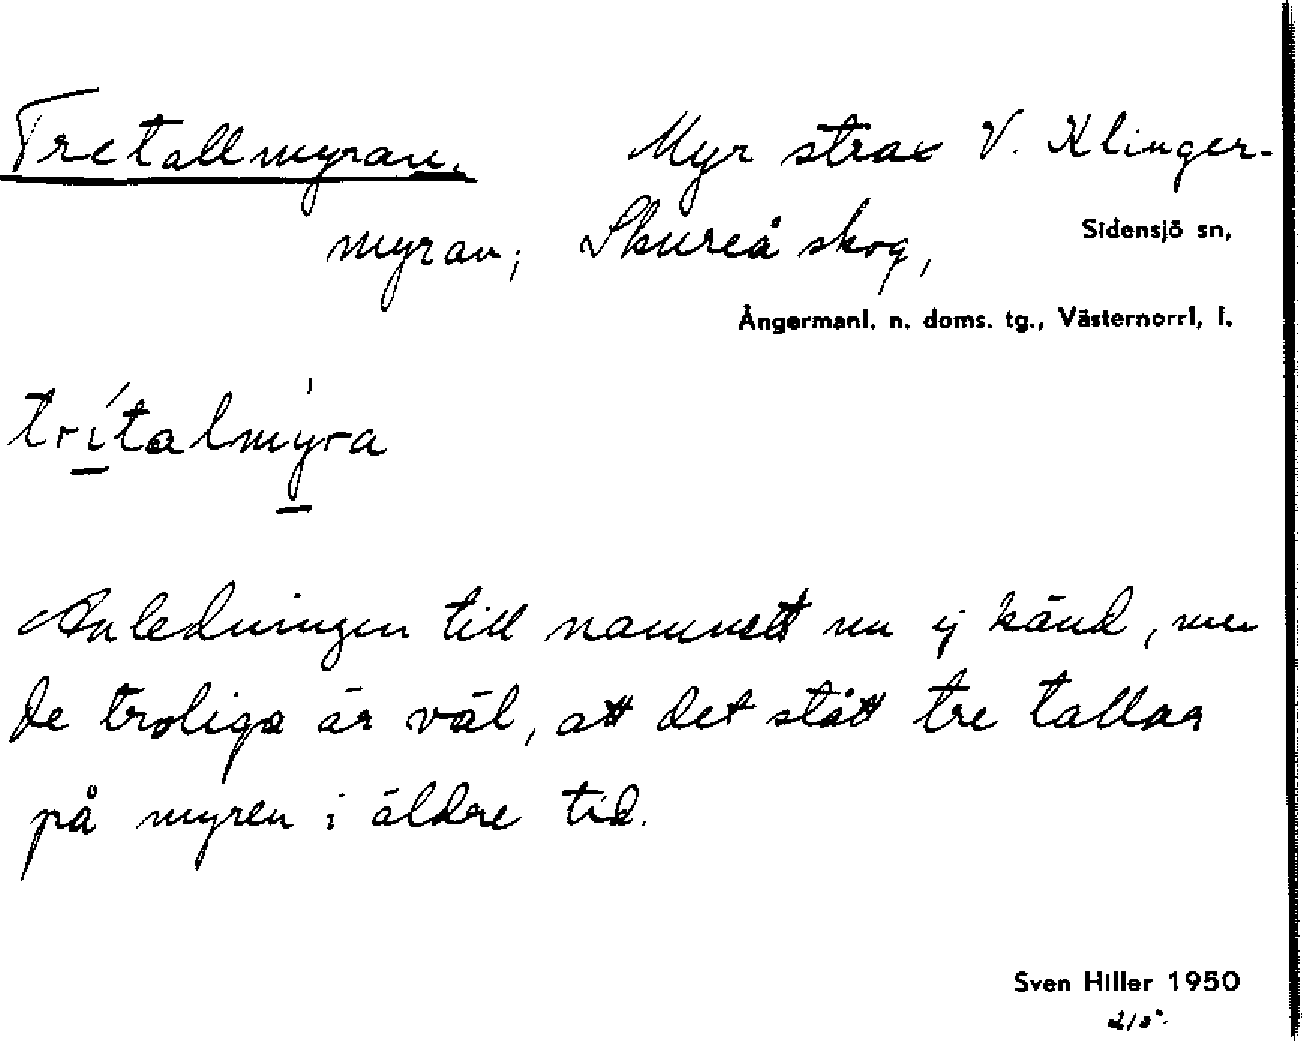 Tretallmyran. Myr strax V. Klinger-
myran; Skureå skog, Sidensjö sn,
Ångermanl. n. doms. tg., Västernorrl, l.
trítalmýra
Anledningen till namnett nu ej känd, men
de troliga är väl, att det stått tre tallar
på myren i äldre tid.
Sven Hiller 1950